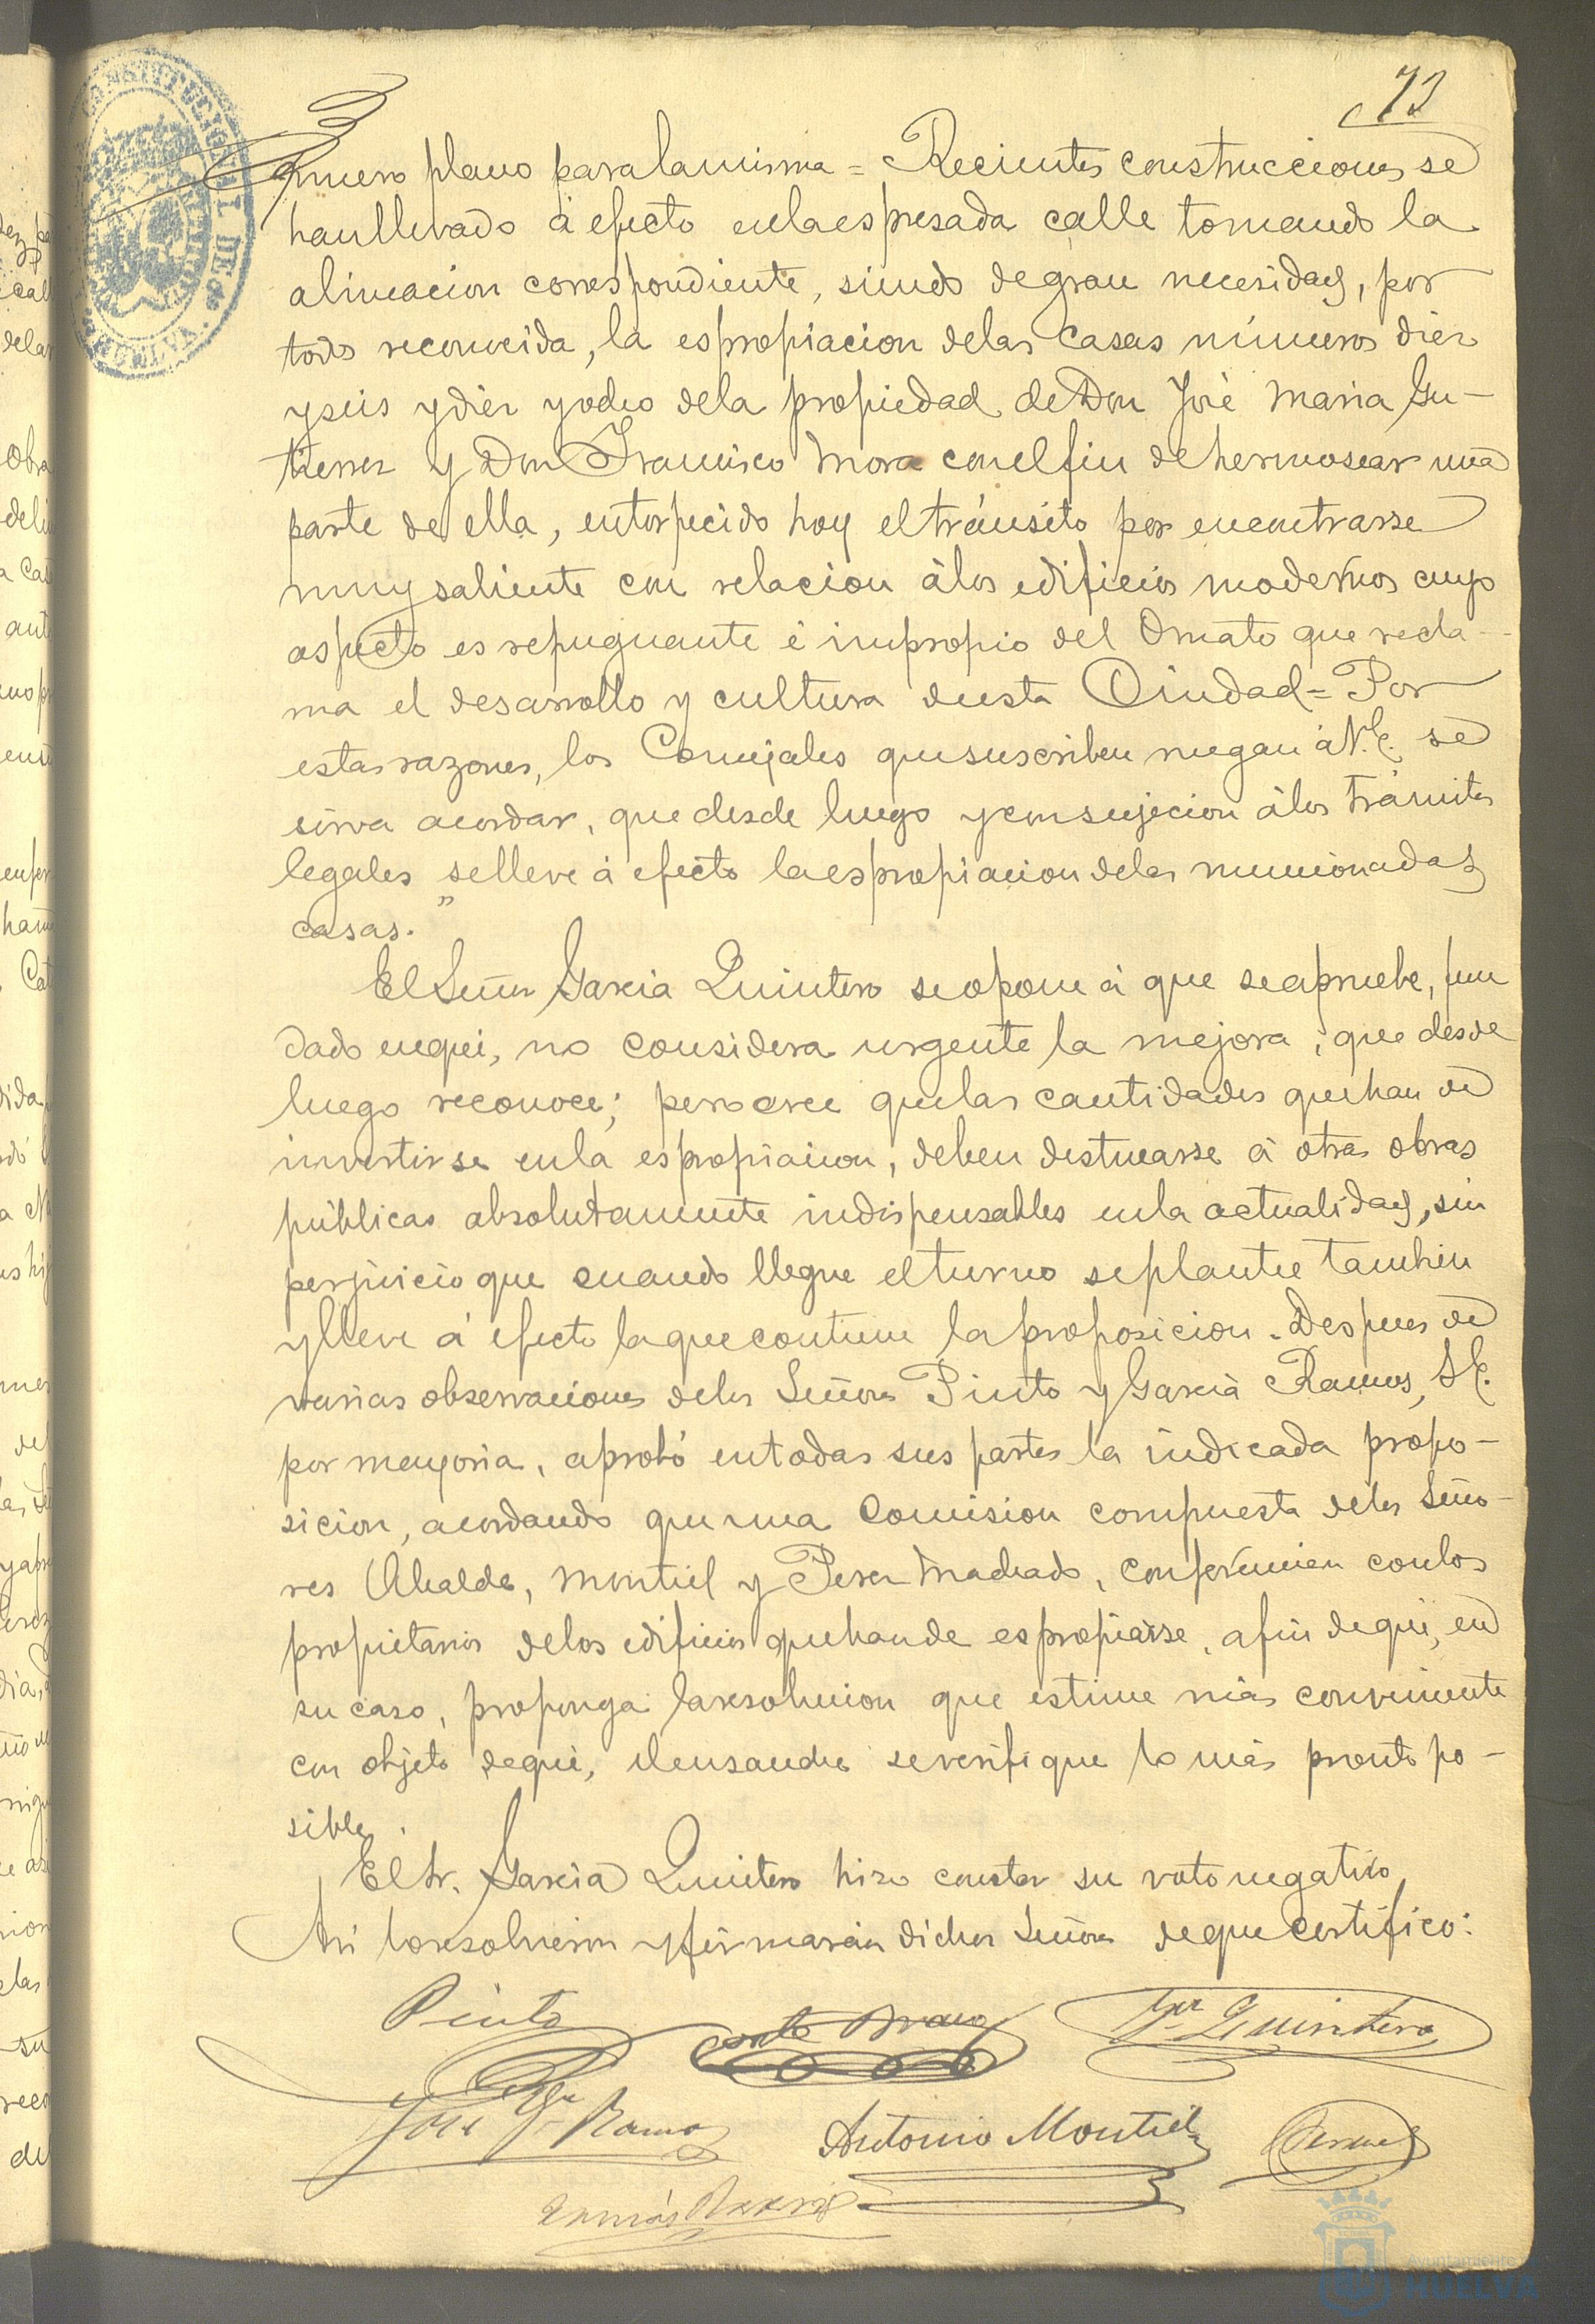 73
nuevo plano para la misma = Recientes construcciones se
han llevado á efecto en la espresada calle tomando la
alineacion correspondiente, siendo de gran necesidad, por
todos reconocida, la espropiacion de las casas números diez
y seis y diez y ocho de la propiedad de Don José Maria Gu-
tierrez y Don Francisco Mora con el fin de hermosear una
parte de ella, entorpecido hoy el tránsito por encontrarse
muy saliente con relacion á los edificios modernos cuyo
aspecto es repugnante é impropio del Ornato que recla-
ma el desarrollo y cultura de esta Ciudad = Por
estas razones, los Concejales que suscriben ruegan á V.E. se
sirva acordar, que desde luego y con sujecion á los trámites
legales se lleve á efecto la espropiacion de las mencionadas
casas."
El Señor Garcia Quintero se opone á que se apruebe, fun
dado en que, no considera urgente la mejora, que desde
luego reconoce; pero cree que las cantidades que han de
invertirse en la espropiacion, deben destinarse á otras obras
públicas absolutamente indispensables en la actualidad, sin
perjuicio que cuando llegue el turno se plantee tambien
y lleve á efecto la que contiene la proposicion. Despues de
varias observaciones de los Señores Pinto y Garcia Ramos, S.E.
por mayoria, aprobó en todas sus partes la indicada propo-
sicion, acordando que una Comision compuesta de los Seño-
res Alcalde, Montiel y Perez Machado, conferencien con los
propietarios de los edificios que han de espropiarse, a fin de que, en
su caso, proponga la resolucion que estime más conveniente
con objeto de que, el ensanche se verifique lo más pronto po-
sible.
El Sr. Garcia Quintero hizo constar su voto negativo
Asi lo resolvieron y firmarán dichos Señores de que certifico:
Pinto
Gª Quintero
José Gª Ramos
Antonio Montiel
Ayuntamiento
HUELVA